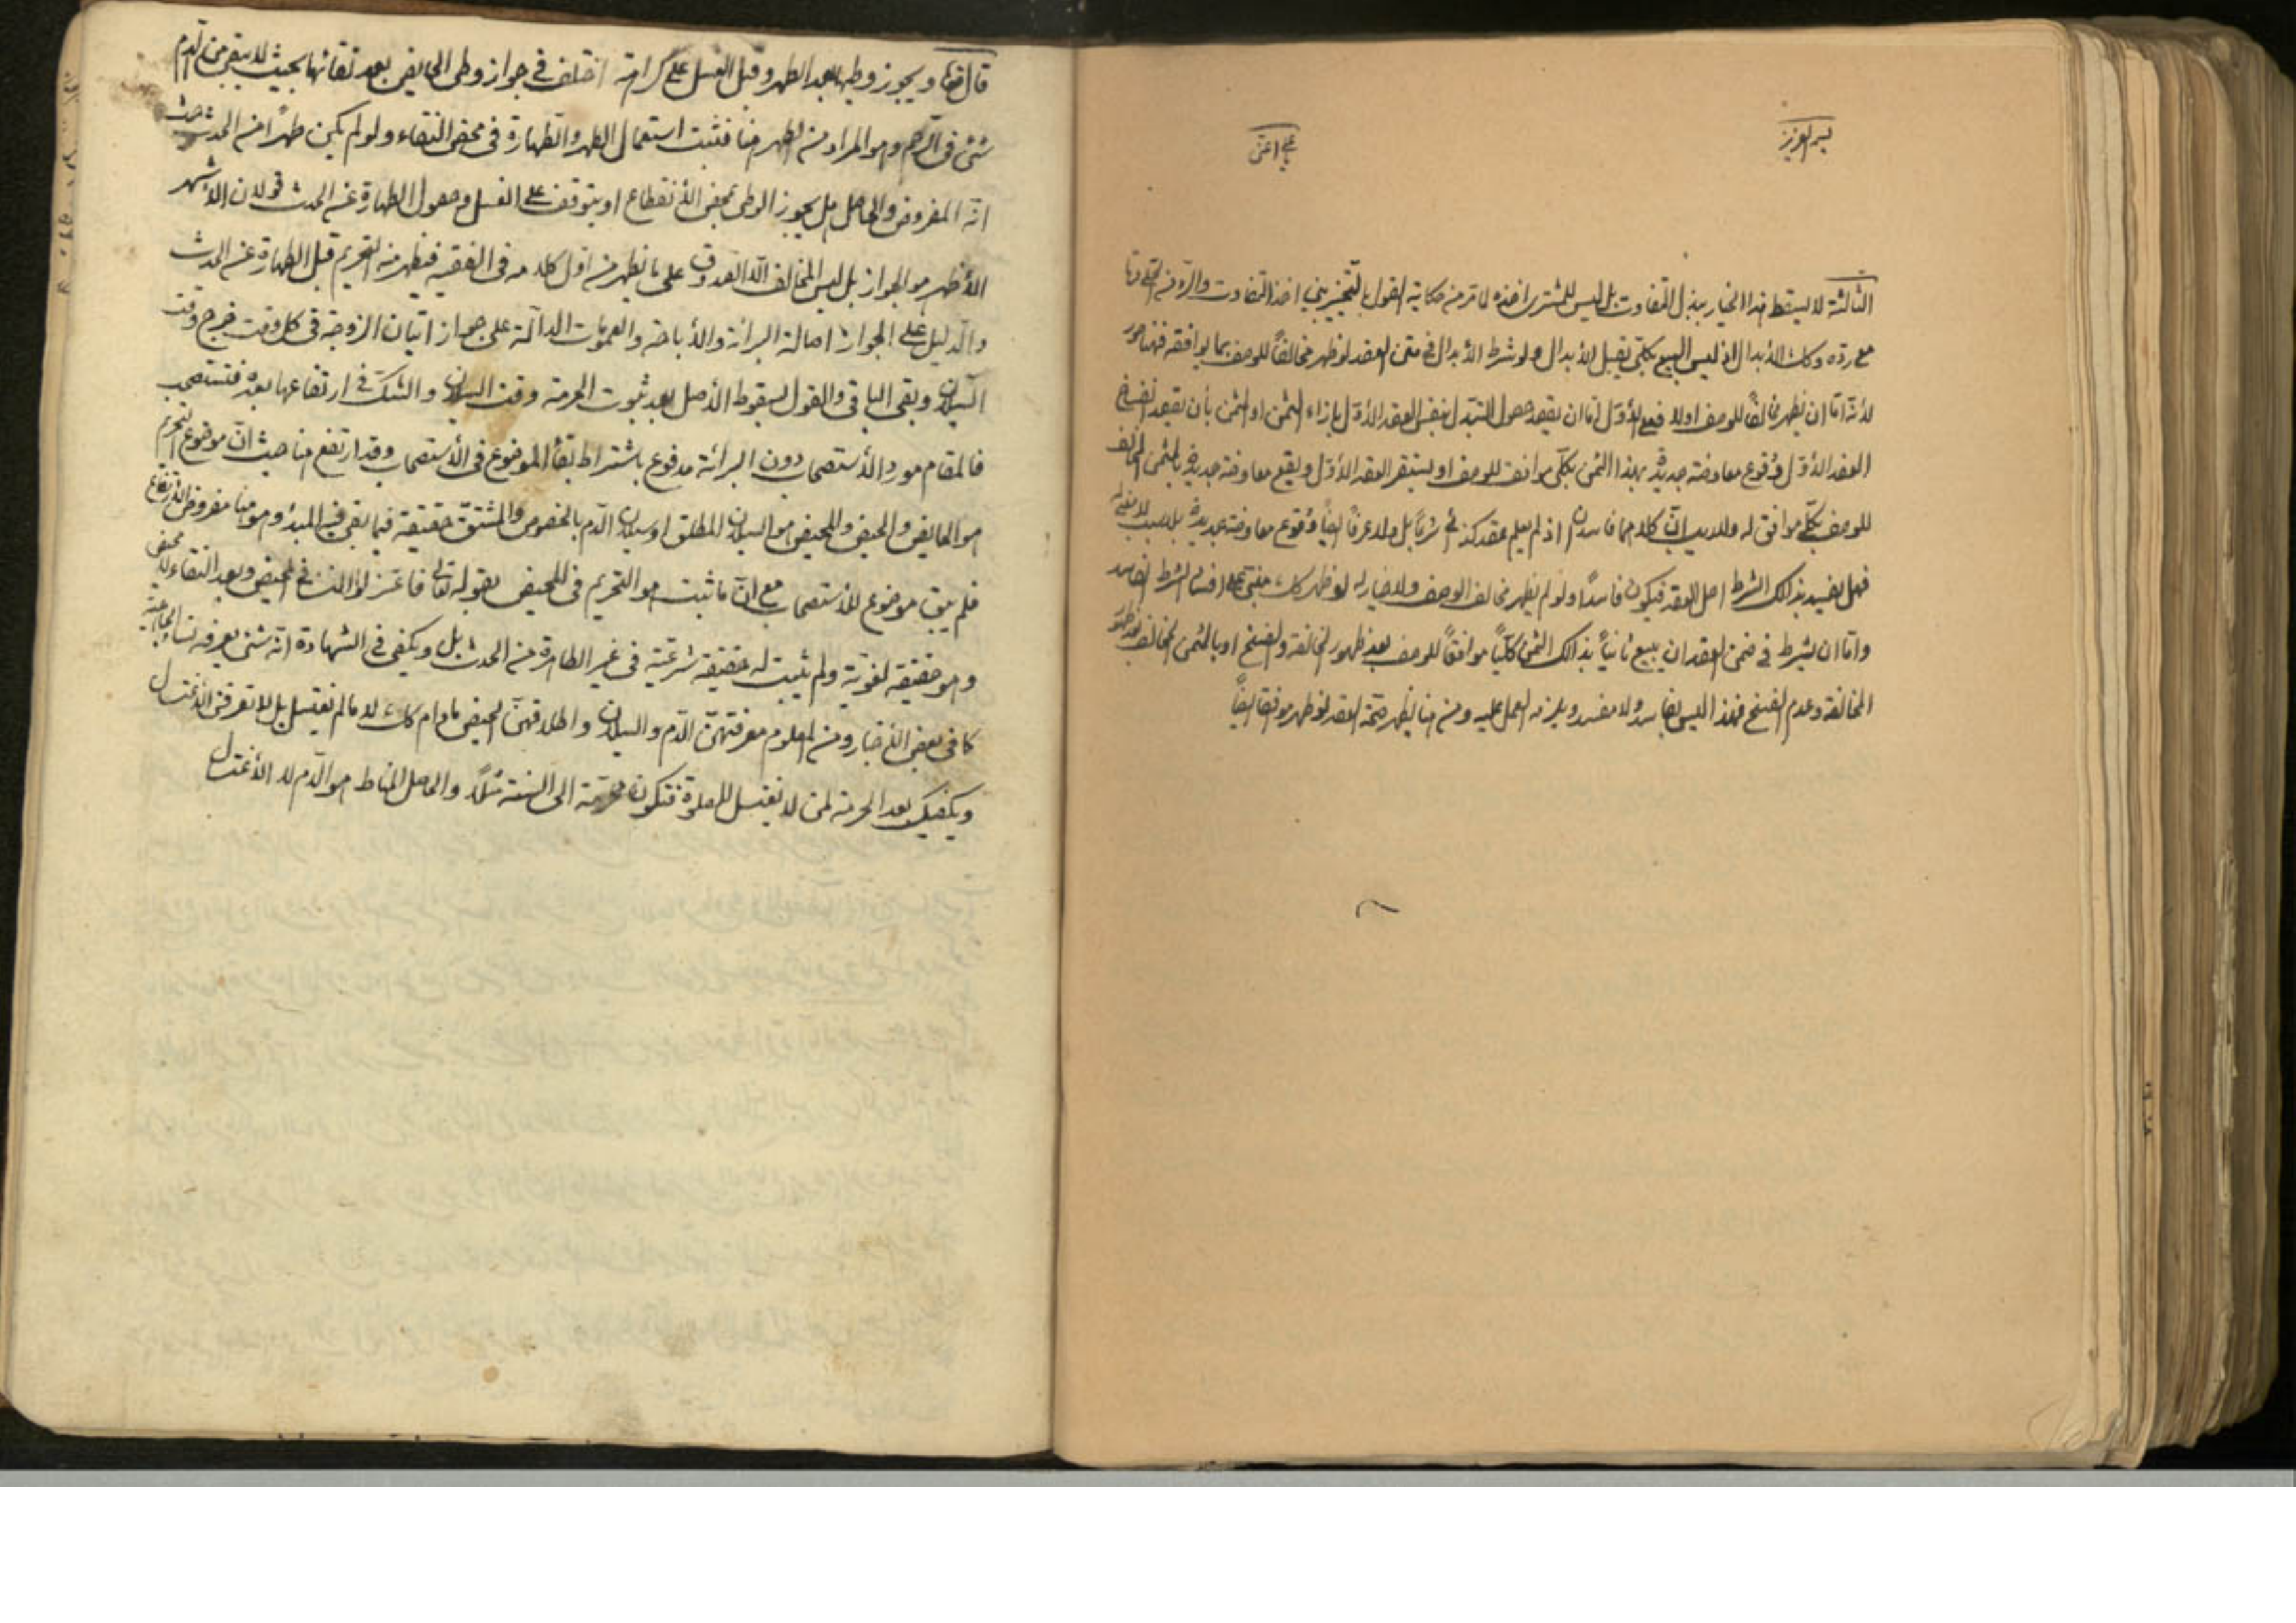 بسم العزيز
الثالثة لا يسقط هذا الخيار ببذل التفاوت بل ليس للمشتري اخذه لما مر من حكاية القول بالتخيير بين اخذ التفاوت والرد
مع رده وكك الابدال اذ ليس المبيع بكلي يقبل الابدال ولو شرط الابدال في متن العقد لو ظهر مخالفا للوصف بما يوافقه فهنا صور
لأنه اما ان يظهر مخالفا للوصف اولا فعلى الأول اما ان يقصد حصول التبدل بنفس العقد الأول بإزاء الثمن او المثمن بأن يقصد انفساخ
العقد الأول وقوع معاوضة جديدة بهذا الثمن بكلي موافق للوصف او يستقر العقد الأول ويقع معاوضة جديدة بالمثمن المخالف
للوصف بكلي موافق له ولا ريب ان كلاهما فاسدان اذ لم يعلم عقد كذلك شرعا بل ولا عرفا ايضا وقوع معاوضة جديدة بلا سبب
فهل يفسد بذلك الشرط اصل العقد فيكون فاسدا ولو لم يظهر مخالف الوصف ولا خيار له لو ظهر كك مبني على افساد الشرط الفاسد
واما ان يشرط في ضمن العقد ان يبيع ثانيا بذلك الثمن كليا موافقا للوصف بعد ظهور المخالفة والفسخ او بالمثمن المخالف بعد ظهور
المخالفة وعدم الفسخ فهذا ليس بفاسد ولا مفسد ويلزمه العمل عليه ومن هنا يظهر صحة العقد لو ظهر موافقا ايضا
قال ويجوز وطيها بعد الطهر وقبل الغسل على كراهة اختلف في جواز وطى الحايض بعد نقائها بحيث لا يبقى من الدم
شئ في الرحم وهو المراد من الطهر هنا فثبت استعمال الطهر والطهارة في محض النقاء ولو لم يكن طهرا من الحدث حيث
انه المفروض والحاصل هل يجوز الوطى بمحض الأنقطاع او يتوقف على الغسل وحصول الطهارة عن الحدث قولان الأشهر
الأظهر هو الجواز بل ليس المخالف الا الصدوق على ما يظهر من اول كلامه في الفقيه فيظهر منه التحريم قبل الطهارة عن الحدث
والدليل على الجواز اصالة البرائة والأباحة والعمومات الدالة على جواز اتيان الزوجة في كل وقت خرج وقت
السيلان وبقى الباقي والقول بسقوط الأصل بعد ثبوت الحرمة وقت السيلان والشك في ارتفاعها بعده فتستصحب
فالمقام مورد الأستصحاب دون البرائة مدفوع باشتراط بقاء الموضوع في الأستصحاب وقد ارتفع هنا حيث ان موضوع التحريم
هو الحايض والحيض والمحيض هو السيلان المطلق او سيلان الدم بالخصوص والمشتق حقيقة فيما بقى فيه المبدء وهو هنا مفروض الأرتفاع
فلم يبق موضوع للأستصحاب مع ان ما ثبت هو التحريم في المحيض بقوله تعالى فاعتزلوا النساء في المحيض وبعد النقاء لا محيض
وهو حقيقة لغوية ولم يثبت له حقيقة شرعية في غير الطاهرة من الحدث بل ويكفي في الشهادة انه شئ يعرفه نساء الجاهلية
كما في بعض الأخبار ومن المعلوم معرفتهن الدم والسيلان واطلاقهن الحيض مادام كك لا ما لم يغتسل بل لا تعرفن الأغتسال
ويكفيك بعد الحرمة لمن لا تغتسل للصلوة فتكون محرمة الى السنة مثلا والحاصل المناط هو الدم لا الأغتسال